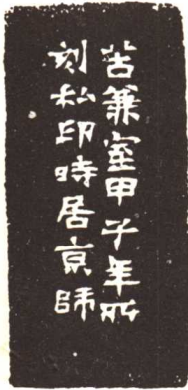 苦蒹室甲子年所
刻私印時居京師